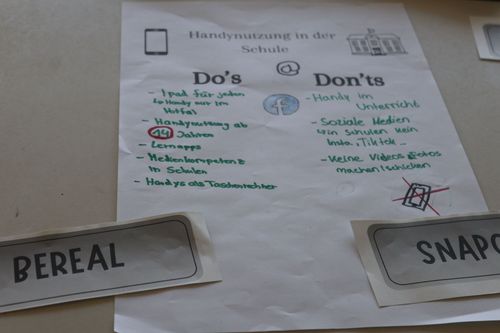 Handynutzung in der
Schule
@
Do's
- Ipad für jeden
↳ Handy nur im
Notfall
- Handynutzung ab
14 Jahren
- Lernapps
- Medienkompetenz
in Schulen
- Handys als Taschenrechner
Don'ts
- Handy im
Unterricht
- Soziale Medien
↳ in Schulen kein
Insta, Tiktok..
- Keine Videos/Fotos
machen/schicken
BEREAL
SNAPC